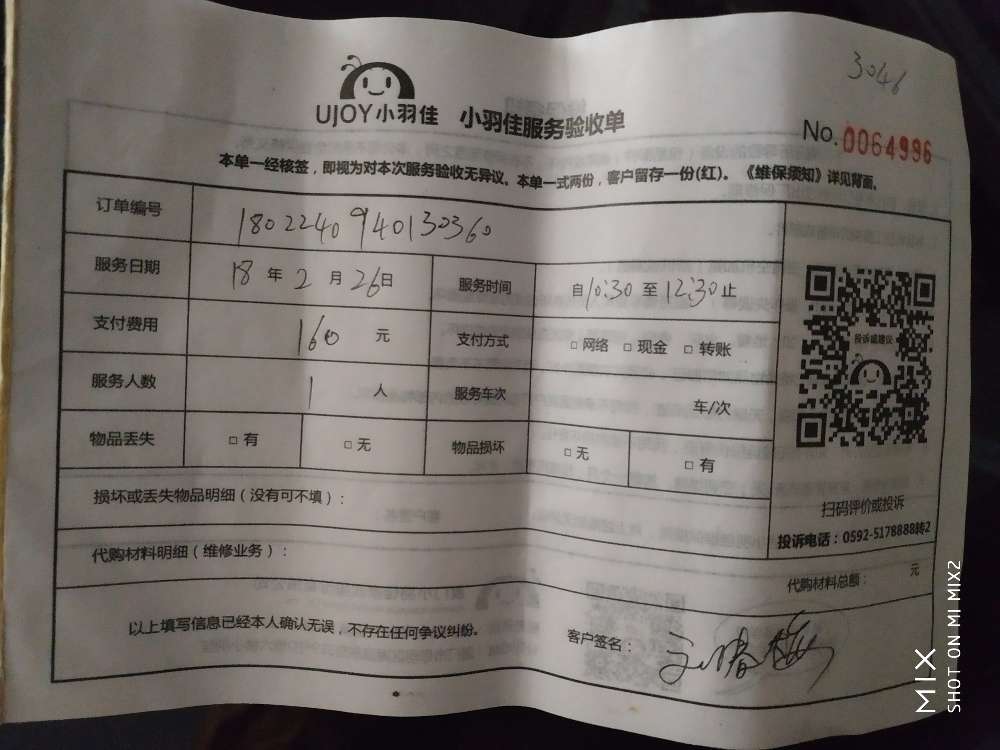 3046
UJOY小羽佳 小羽佳服务验收单
No. 0064996
本单一经核签，即视为对本次服务验收无异议。本单一式两份，客户留存一份(红)。《维保须知》详见背面。
订单编号 1802240940130360
服务日期 18 年 2 月 26 日 服务时间 自 10:30 至 12:30 止
支付费用 160 元 支付方式 □ 网络 □ 现金 □ 转账
服务人数 1 人 服务车次 车/次
物品丢失 □ 有 □ 无 物品损坏 □ 无 □ 有
投诉或建议
扫码评价或投诉
投诉电话：0592-5178888转2
损坏或丢失物品明细（没有可不填）：
代购材料明细（维修业务）：
代购材料总额： 元
以上填写信息已经本人确认无误，不存在任何争议纠纷。
客户签名：
MIX
SHOT ON MI MIX2